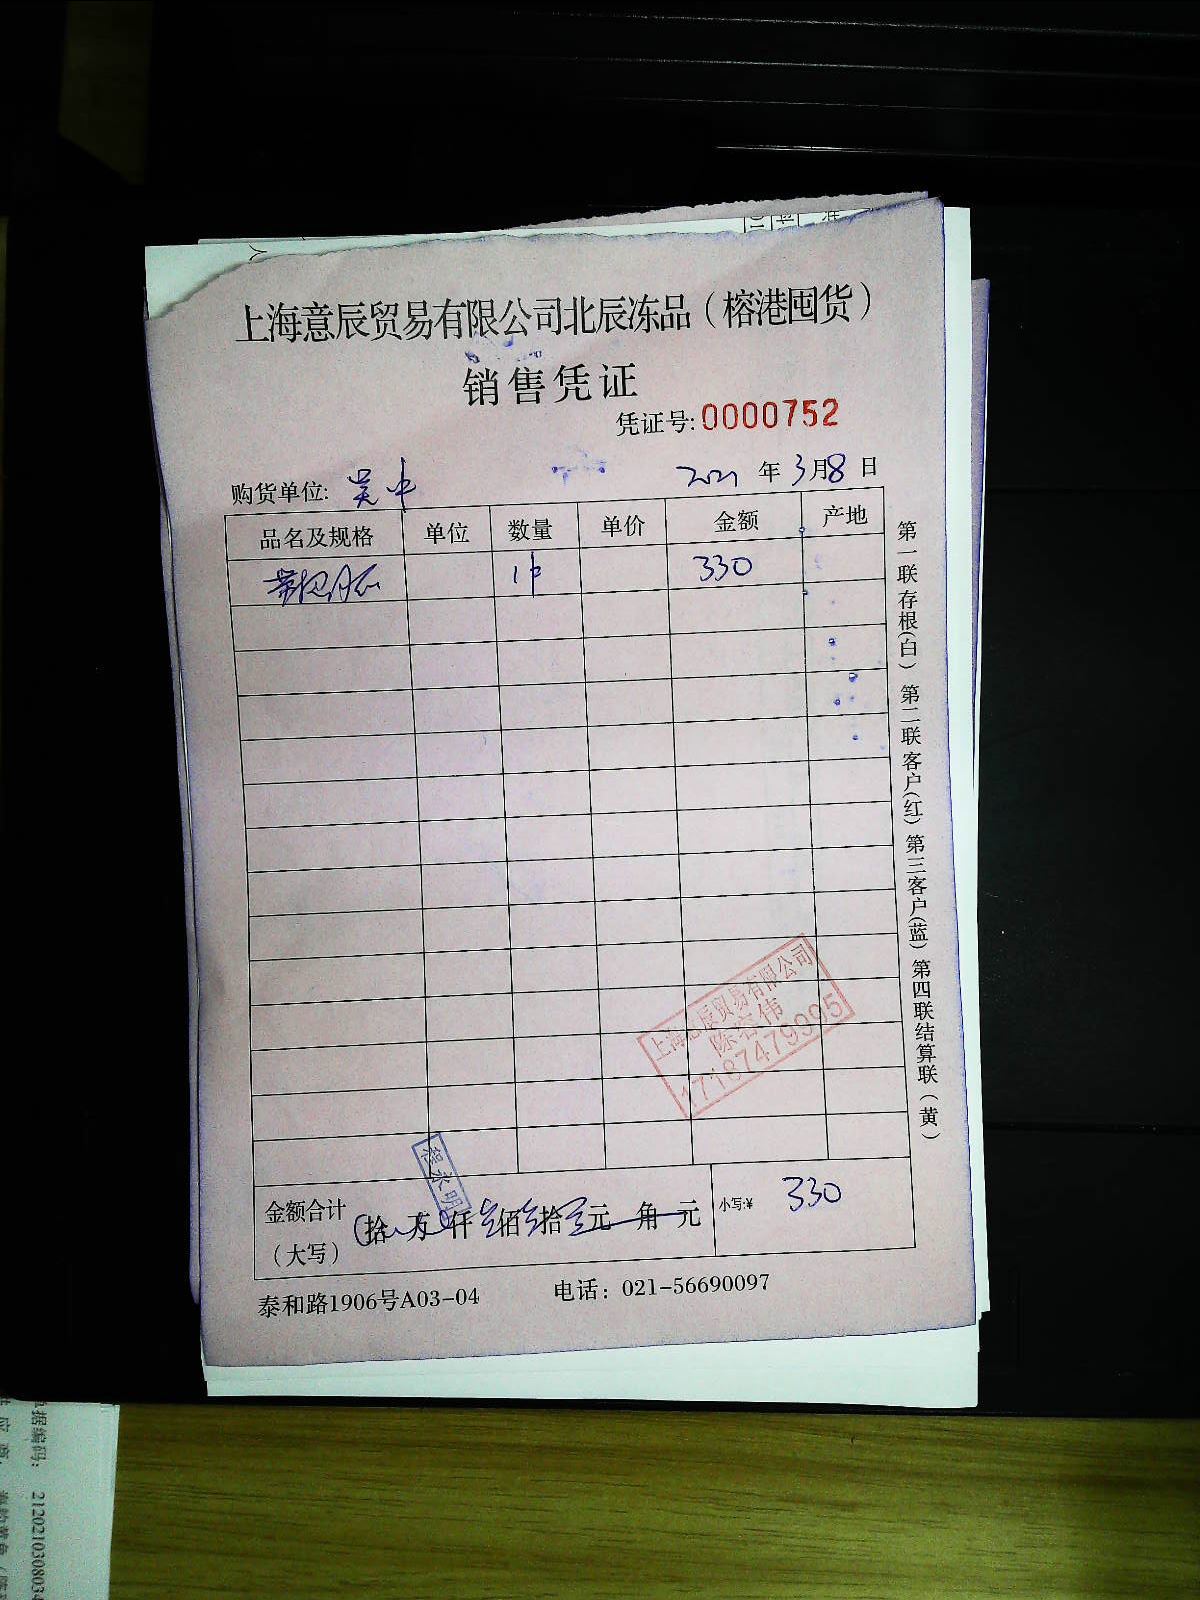 上海意辰贸易有限公司北辰冻品（榕港囤货）
销售凭证
凭证号:0000752
购货单位: 吴中
2021 年 3月8日
品名及规格 单位 数量 单价 金额 产地
1件 330
第一联存根(白) 第二联客户(红) 第三客户(蓝) 第四联结算联（黄）
上海意辰贸易有限公司
陈容伟
17187479095
程永明
金额合计（大写） 拾 万 仟 叁佰叁拾 元 角 元
小写:¥ 330
泰和路1906号A03-04 电话：021-56690097
据编码: 212021030803